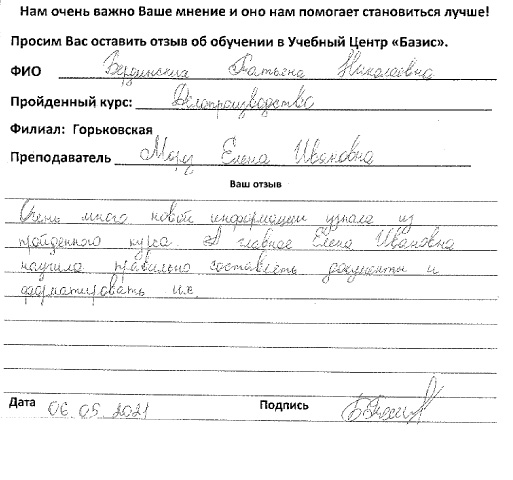 Нам очень важно Ваше мнение и оно нам помогает становиться лучше!
Просим Вас оставить отзыв об обучении в Учебный Центр «Базис».
ФИО Бердинских Татьяна Николаевна
Пройденный курс: Делопроизводство
Филиал: Горьковская
Преподаватель Мору Елена Ивановна
Ваш отзыв
Очень много новой информации узнала из
пройденного курса. А главное Елена Ивановна
научила правильно составлять документы и
форматировать их.
Дата 06 05 2021 Подпись